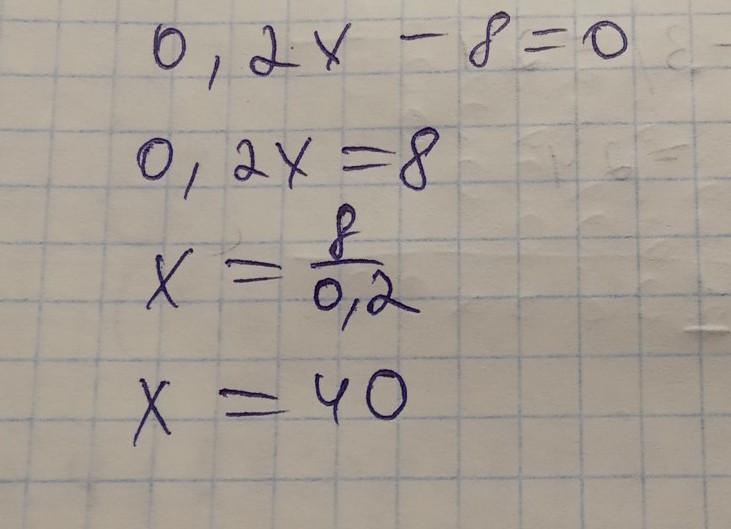 0,2x - 8 = 0
0,2x = 8
x = 8/0,2
x = 40